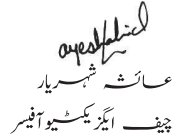 عائشہ شہریار
چیف ایگزیکٹیو آفیسر